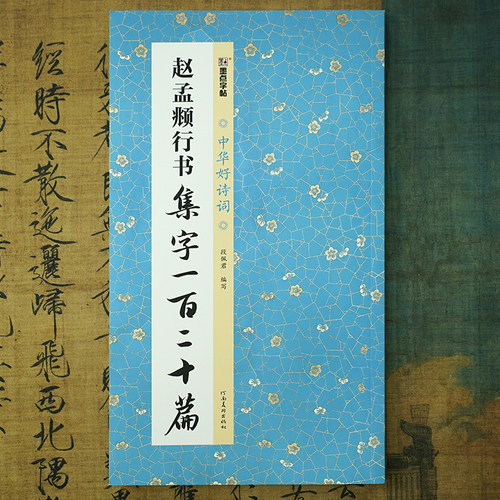 墨点字帖
中华好诗词
赵孟頫行书集字一百二十篇
段佩君 编写
河南美术出版社
經時不散迤邐歸飛西北隅